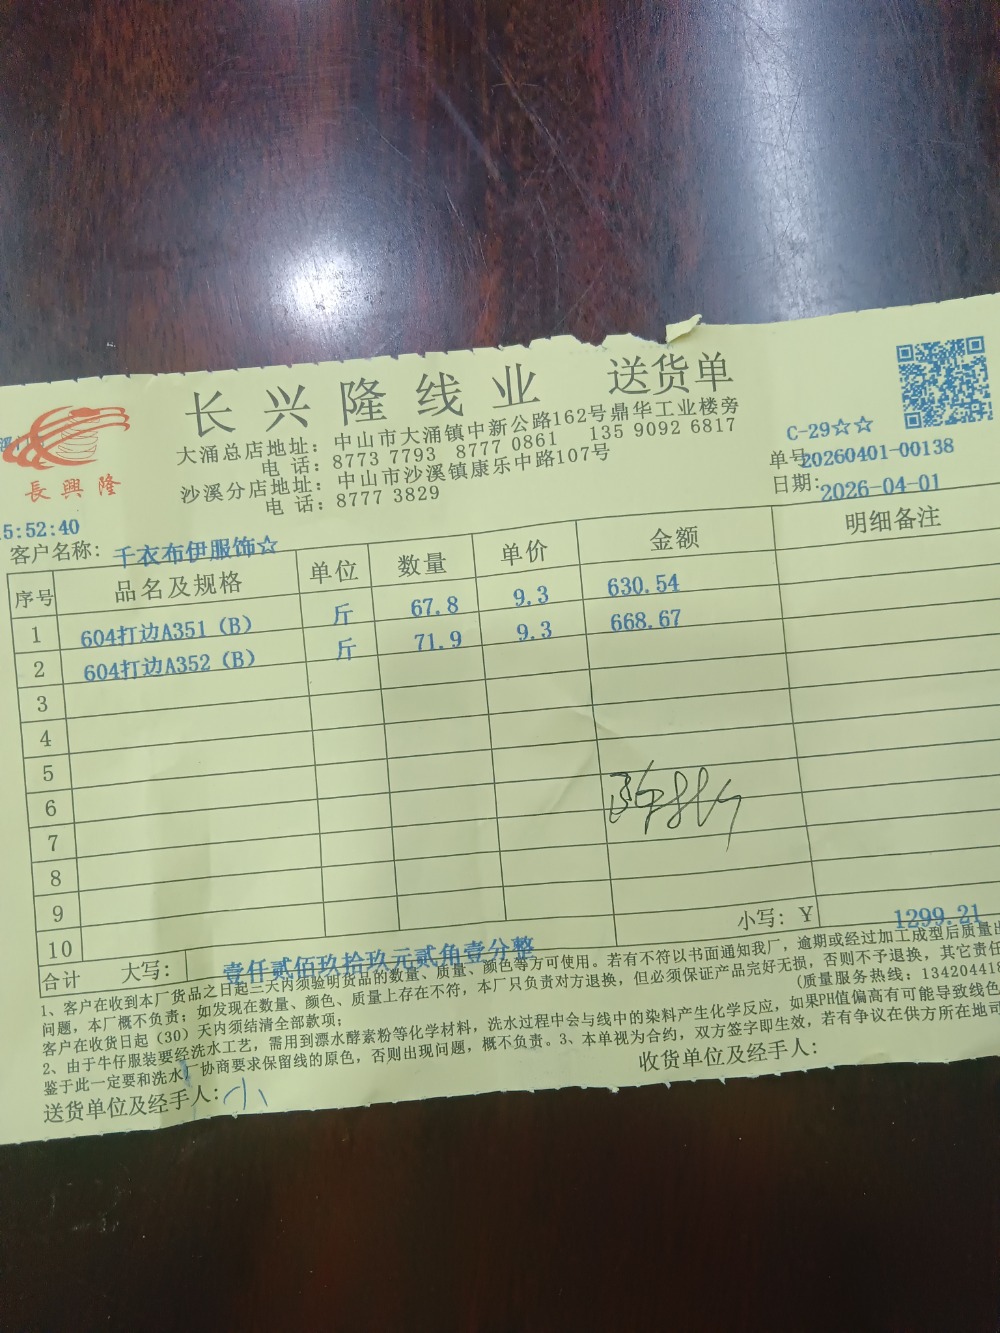 长兴隆线业 送货单
大涌总店地址：中山市大涌镇中新公路162号鼎华工业楼旁
电 话：8773 7793 8777 0861 135 9092 6817
沙溪分店地址：中山市沙溪镇康乐中路107号
电 话：8777 3829
長興隆
C-29☆☆
单号20260401-00138
日期：2026-04-01
5:52:40
客户名称：千衣布伊服饰☆
序号 品名及规格 单位 数量 单价 金额 明细备注
1 604打边A351（B） 斤 67.8 9.3 630.54
2 604打边A352（B） 斤 71.9 9.3 668.67
3
4
5
6
7
8
9
10
合计 大写：壹仟贰佰玖拾玖元贰角壹分整 小写：Y 1299.21
1、客户在收到本厂货品之日起三天内须验明货品的数量、质量、颜色等方可使用。若有不符以书面通知我厂，逾期或经过加工成型后质量出
问题，本厂概不负责；如发现在数量、颜色、质量上存在不符，本厂只负责对方退换，但必须保证产品完好无损，否则不予退换，其它责任
客户在收货日起（30）天内须结清全部款项； （质量服务热线：134204418
2、由于牛仔服装要经洗水工艺，需用到漂水酵素粉等化学材料，洗水过程中会与线中的染料产生化学反应，如果PH值偏高有可能导致线色
鉴于此一定要和洗水厂协商要求保留线的原色，否则出现问题，概不负责。3、本单视为合约，双方签字即生效，若有争议在供方所在地司
送货单位及经手人：小 收货单位及经手人：